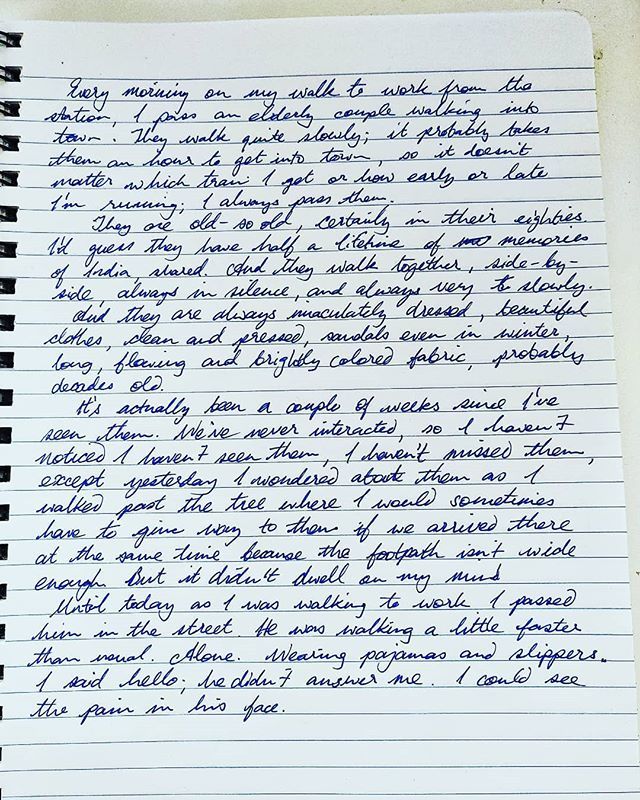 Every morning on my walk to work from the
station, I pass an elderly couple walking into
town. They walk quite slowly; it probably takes
them an hour to get into town, so it doesn't
matter which train I get or how early or late
I'm running; I always pass them.
They are old-so old, certainly in their eighties.
I'd guess they have half a lifetime of memories
of India, shared. And they walk together, side-by-
side, always in silence, and always very to slowly.
And they are always immaculately dressed, beautiful
clothes, clean and pressed, sandals even in winter,
long, flowing and brightly colored fabric, probably
decades old.
It's actually been a couple of weeks since I've
seen them. We've never interacted, so I haven't
noticed I haven't seen them, I haven't missed them,
except yesterday I wondered about them as I
walked past the tree where I would sometimes
have to give way to them if we arrived there
at the same time because the footpath isn't wide
enough. But it didn't dwell on my mind
Until today as I was walking to work I passed
him in the street. He was walking a little faster
than usual. Alone. Wearing pajamas and slippers.
I said hello; he didn't answer me. I could see
the pain in his face.